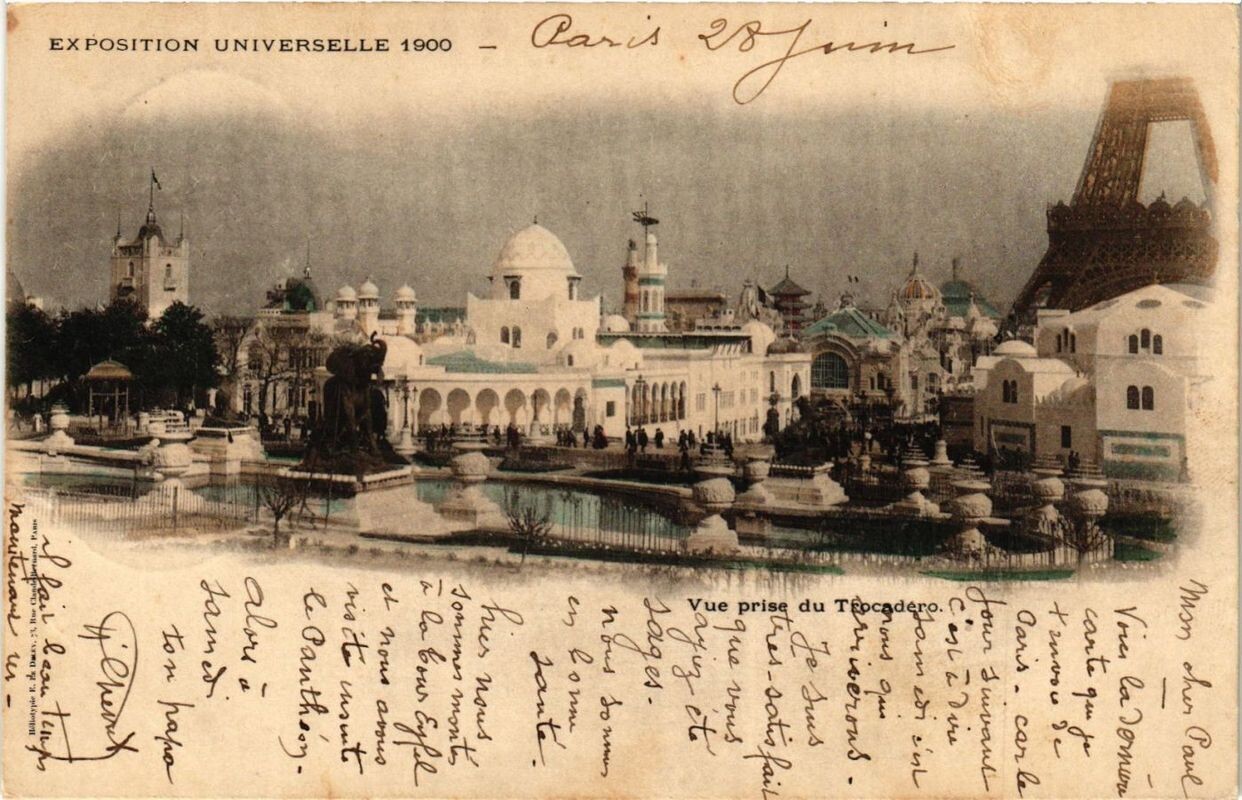 EXPOSITION UNIVERSELLE 1900 – Paris 28 Juin
Vue prise du Trocadéro.
Mon cher Paul
Voici la dernière
carte que je
t'envoie de
Paris - car le
jour suivant
c'est à dire
samedi c'est
nous qui
arriverons.
Je suis
très-satisfait
que vous
ayiez été
sages.
Nous sommes
en bonne
santé.
hier nous
sommes montés
à la Tour Eyfel
et nous avons
visité ensuite
le Panthéon.
Alors à
samedi
ton papa
il fait beau temps
maintenant
Héliotypie E. Le Deley, 73, Rue Claude-Bernard, Paris